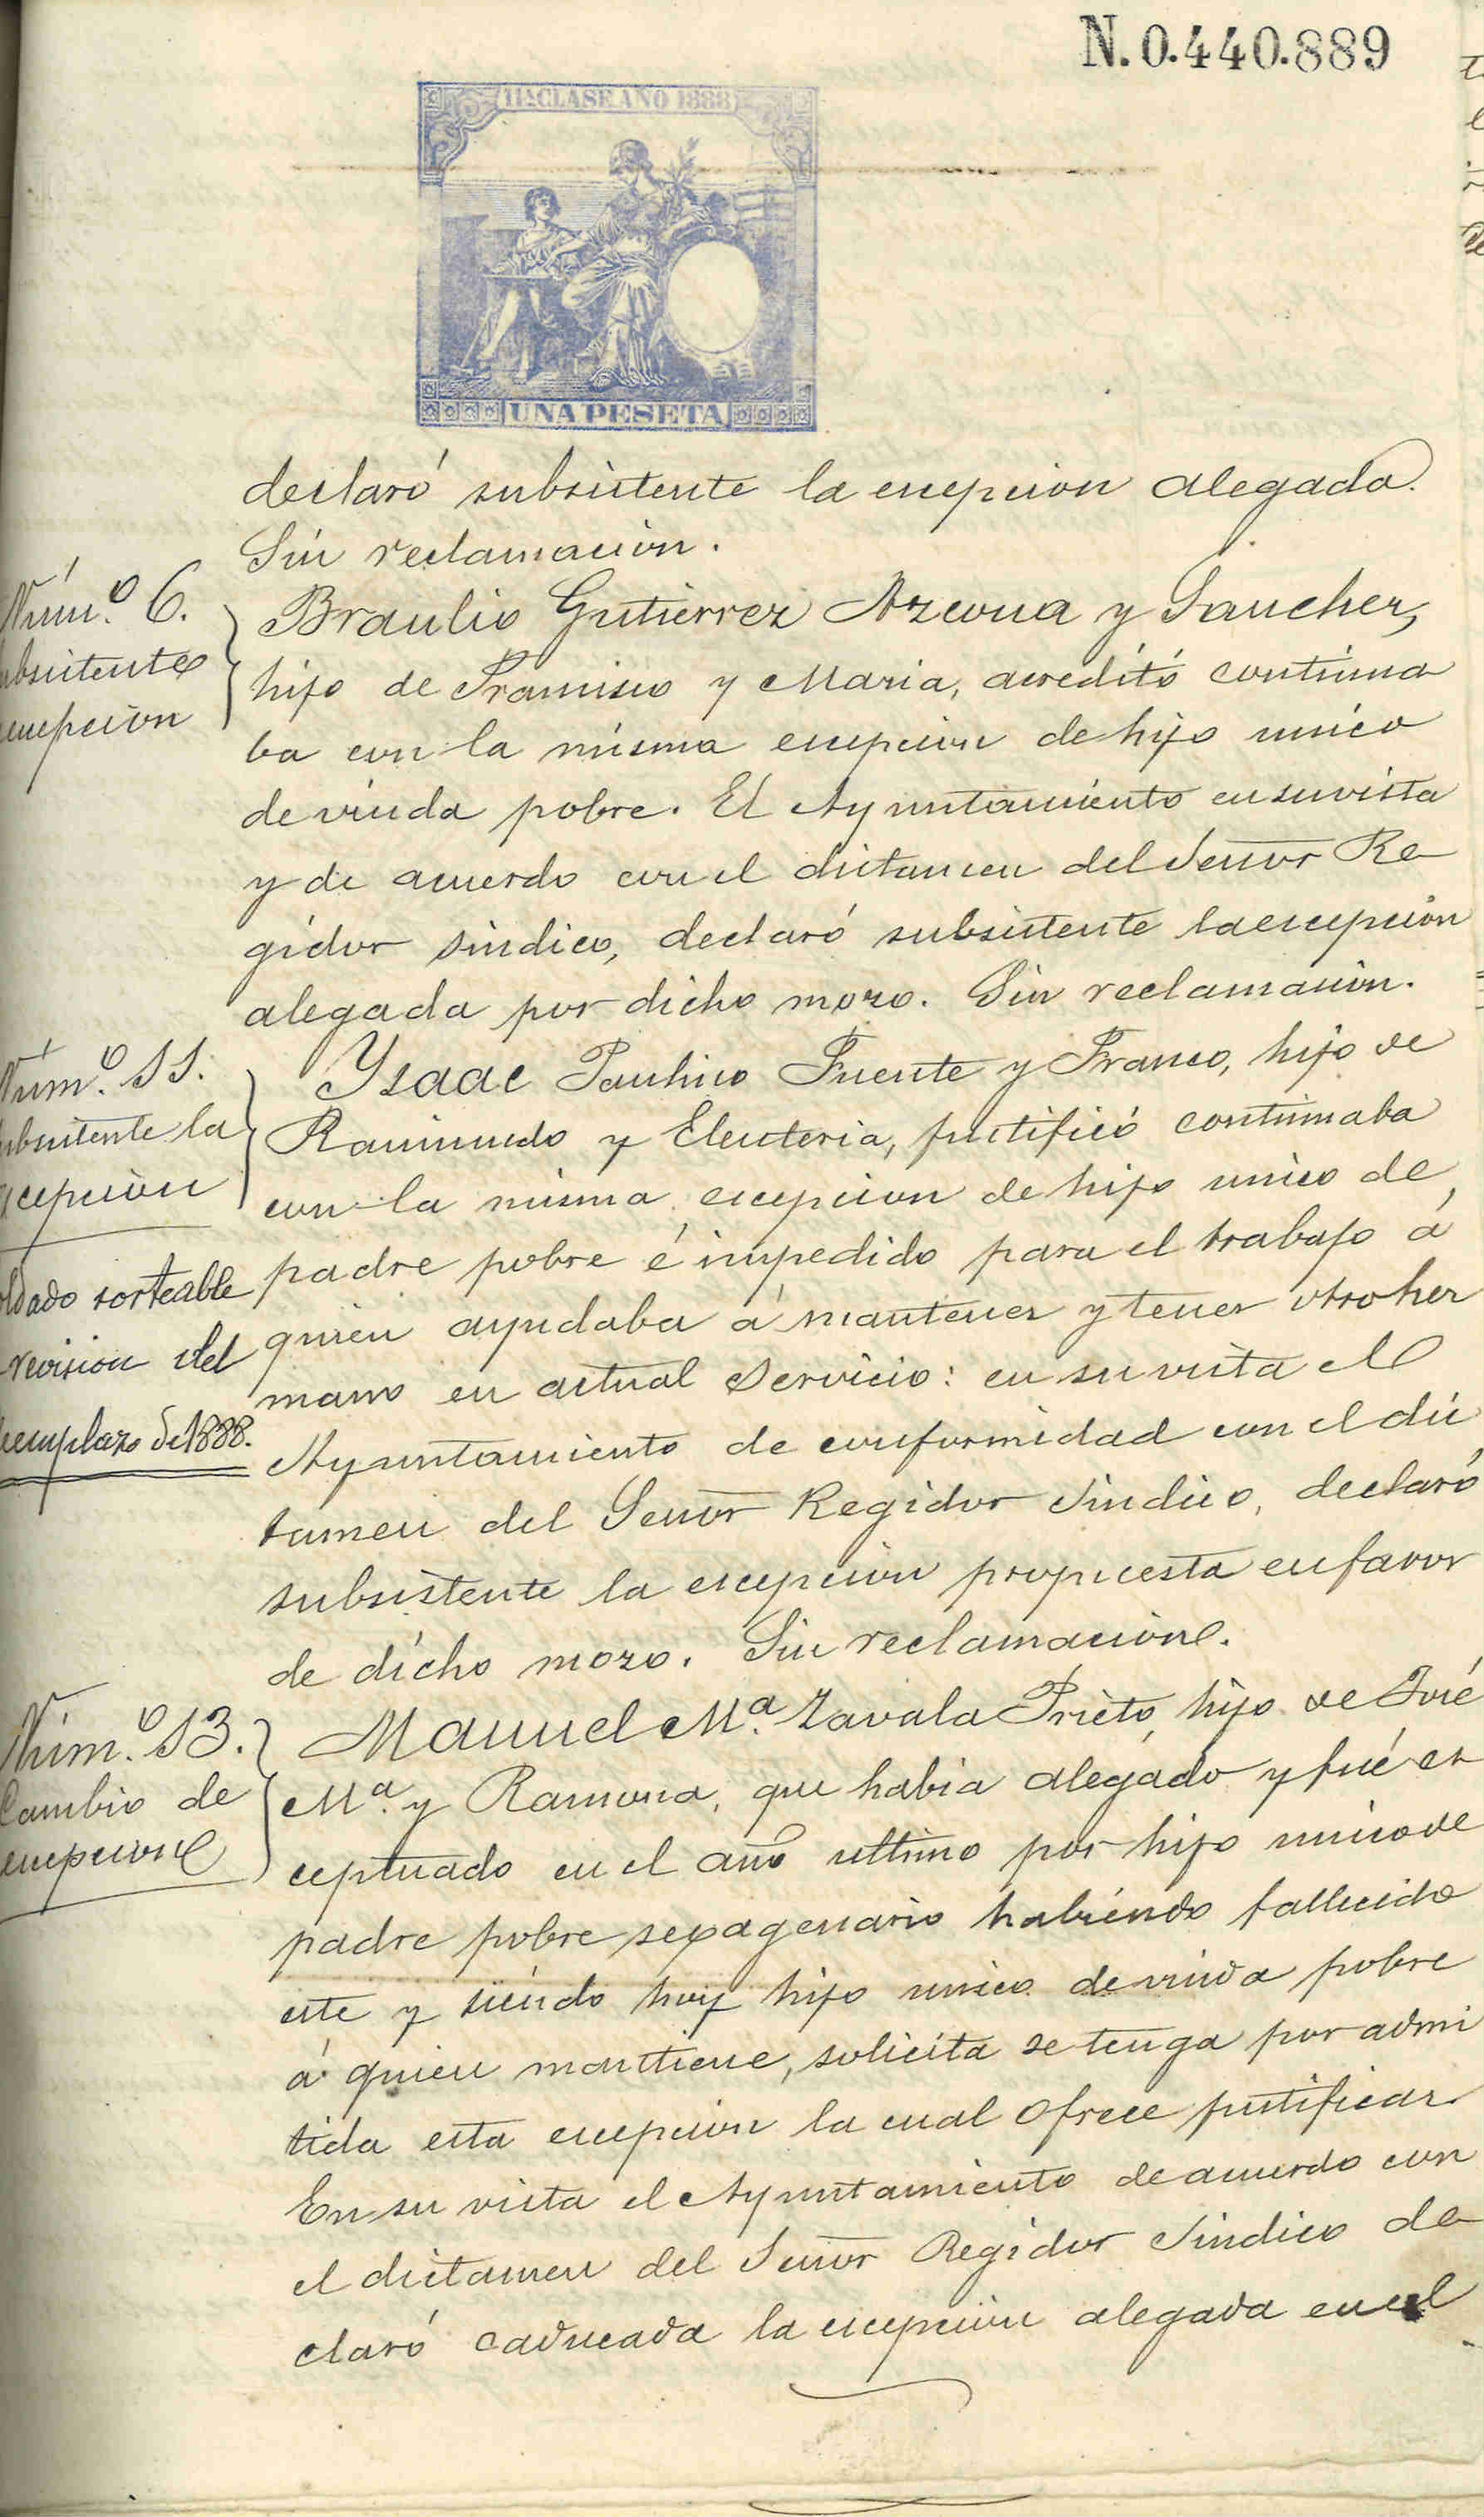 N.0.440.889
11ª CLASE AÑO 1888
UNA PESETA
declaró subsistente la escepcion alegada.
Sin reclamacion.
Núm.º 6.
subsistente
escepcion
Braulio Gutierrez Azcona y Sanchez,
hijo de Francisco y Maria, acreditó continua
ba con la misma escepcion de hijo unico
de viuda pobre. El Ayuntamiento en su vista
y de acuerdo con el dictamen del Señor Re
gidor sindico, declaró subsistente la escepcion
alegada por dicho mozo. Sin reclamacion.
Núm.º 11.
subsistente la
escepcion
Ysaac Paulino Fuente y Franco, hijo de
Raimundo y Eleuteria, justificó continuaba
con la misma escepcion de hijo unico de
padre pobre é impedido para el trabajo á
quien ayudaba á mantener y tener otro her
mano en actual servicio: en su vista el
Ayuntamiento de conformidad con el dic
tamen del Señor Regidor Sindico, declaró
subsistente la escepcion propuesta en favor
de dicho mozo. Sin reclamacion.
soldado sorteable
revision del
reemplazo de 1888.
Núm.º 13.
Cambio de
escepcion
Manuel Mª. Zavala Prieto, hijo de José
Mª. y Ramona, que habia alegado y fué es
ceptuado en el año ultimo por hijo unico de
padre pobre sexagenario habiendo fallecido
este y siendo hoy hijo unico de viuda pobre
á quien mantiene, solicita se tenga por admi
tida esta escepcion la cual ofrece justificar.
En su vista el Ayuntamiento de acuerdo con
el dictamen del Señor Regidor Sindico de
claró caducada la escepcion alegada en el